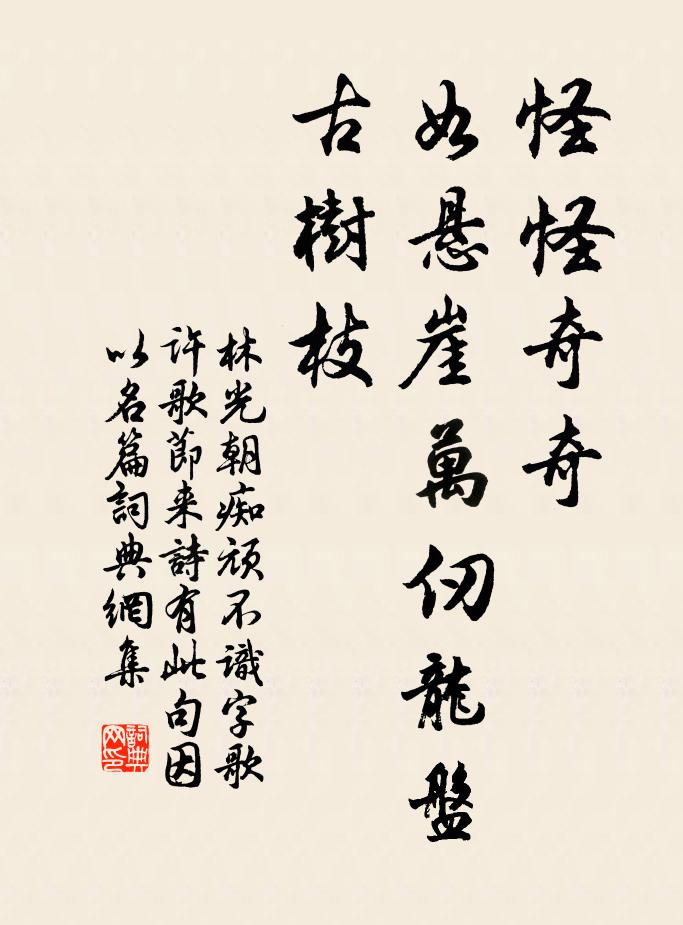 怪怪奇奇
如悬崖萬仞龍盤
古樹枝
林光朝痴頑不識字歌
許歌節来詩有此句因
以名篇詞典網集
詞典网印